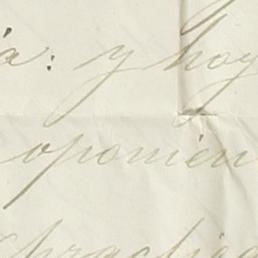 a: y hoy
oponién
practica